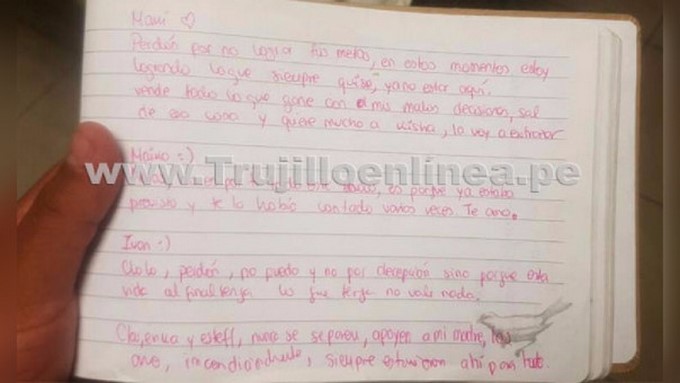 Mami ♡
Perdón por no lograr tus metas, en estos momentos estoy
logrando lo que siempre quise, ya no estar aquí.
vende todo lo que gane con mis malas decisiones, sal
de esa casa y quiere mucho a kisha, la voy a extrañar
:)
www.Trujilloenlínea.pe
es porque ya estaba
previsto y te lo había contado varias veces Te amo.
Ivan :)
perdón, no puedo y no por decepción sino porque esta
vida al final tenga lo que tenga no vale nada.
y esteff, nunca se separen, apoyen a mi madre, las
amo, siempre estuvieron ahí para todo.